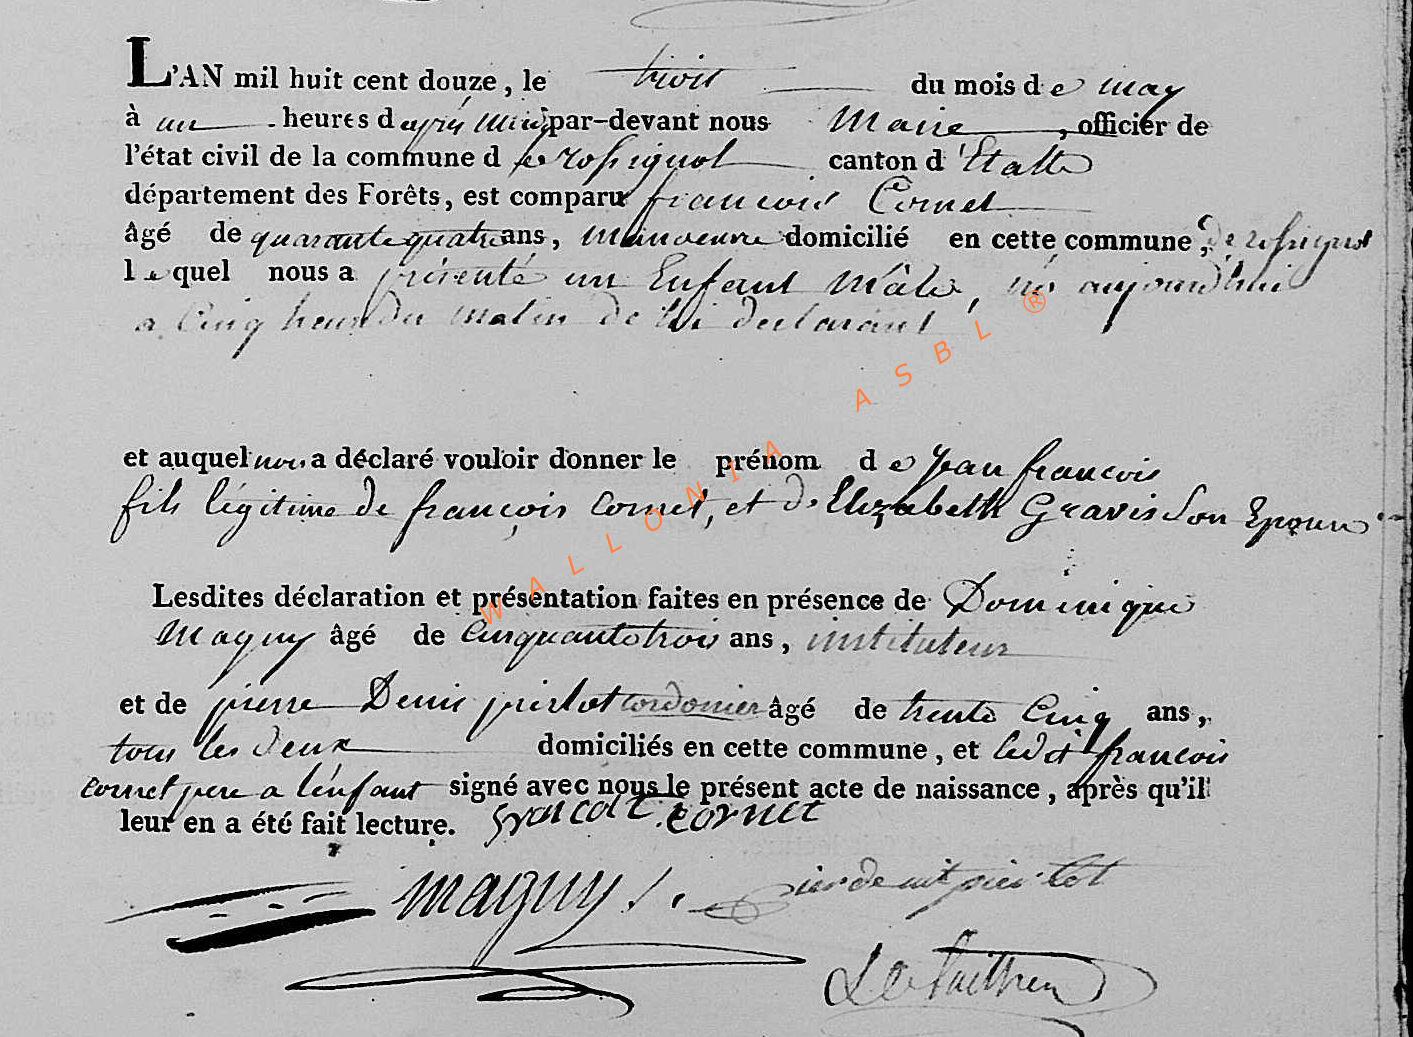 L'AN mil huit cent douze, le trois du mois de may
à une heures d après midi par-devant nous Maire, officier de
l'état civil de la commune d e rossignol canton d'Etalle
département des Forêts, est comparu francois Cornet
âgé de quarante quatre ans, manoeuvre domicilié en cette commune, de rossignol
le quel nous a présenté un Enfant Mâle, né aujourd'hui
a Cinq heur du matin de lui declarant
et auquel nous a déclaré vouloir donner le prénom de Jean francois
fils légitime de françois Cornet, et de Elizabeth Gravis Son Epouse
Lesdites déclaration et présentation faites en présence de Dominique
Maguy âgé de Cinquante trois ans, instituteur
et de pierre Denis pierlot cordonier âgé de trente Cinq ans,
tous les deux domiciliés en cette commune, et ledit francois
cornet pere a l'enfant signé avec nous le présent acte de naissance, après qu'il
leur en a été fait lecture. cornet
maguy
pierlot
WALLONIA ASBL ®